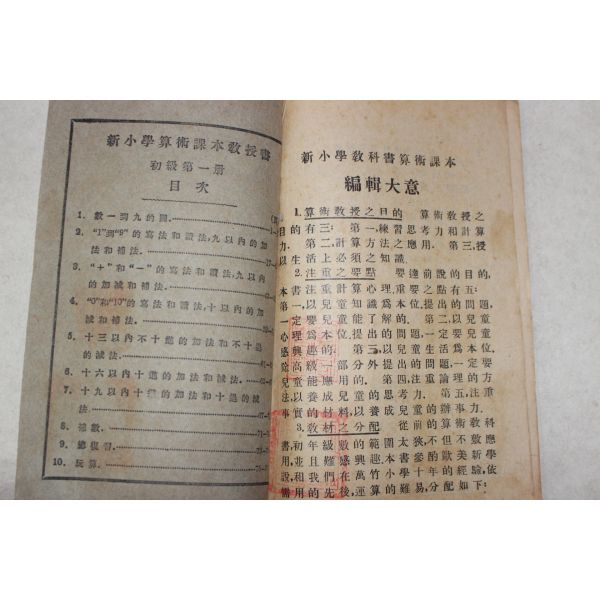 新小學算術課本教授書
初級第一册
目次
1. 數一到九的圖.
2. "1"到"9"的寫法和讀法,九以內的加
法和補法.
3. "+"和"一"的寫法和讀法,九以內
的加減和補法.
4. "0"和"10"的寫法和讀法,十以內的加
減和補法.
5. 十三以內不十進的加法和不十退
的減法.
6. 十六以內十進的加法和減法.
7. 十九以內十進的加法和十退的減
法.
8. 補數.
9. 總復習.
10. 玩算.
新小學教科書算術課本
編輯大意
1. 算術教授之目的 算術教授之
目的有三: 第一,練習思考力和計算
力. 第二,計算方法之應用. 第三,授
以生活上必須之知識.
2. 注重之要點 要達前說的目的,
本書注重計算心理,重要之點有五:
第一,以兒童知識爲本位,提出的問題,
一定要兒童能了解的. 第二,以兒童
心理爲本位,提出的問題,一定要兒童
感興趣的. 第三,以兒童生活爲本位.
除高級一部分外提出的問題,一定要
兒童能應用的. 第四,注重論理的方
法,以養成兒童的思考力. 第五,注重
事實的材料,以養成兒童的辦事力.
3. 教材之分配 從前的算術教科
書,初年級數的範圍太狹,不但不敷應
用,並且難感興趣